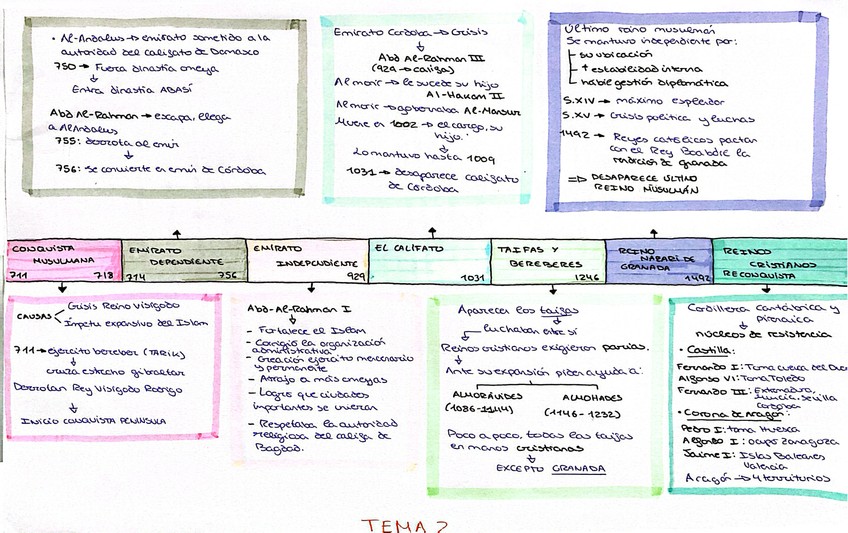 · Al-Andalus → emirato sometido a la
autoridad del califato de Damasco
750 → Fuera dinastía omeya
↓
Entra dinastía ABASÍ
Abd Al-Rahman → escapa, llega
a Al Andalus
755: derrota al emir
↓
756: Se convierte en emir de Córdoba
Emirato Córdoba → Crisis
↓
Abd Al-Rahman III
(929 → califa)
Al morir → le sucede su hijo
Al-Hakam II
Al morir → gobernaba Al-Mansur
Muere en 1002 → el cargo, su
hijo.
↓
Lo mantuvo hasta 1009
1031 → desaparece califato
de Córdoba
Último reino musulmán
Se mantuvo independiente por:
- su ubicación
- + estabilidad interna
- hábil gestión diplomática
S.XIV → máximo esplendor
S.XV → Crisis política y luchas
1492 → Reyes católicos pactan
con el Rey Boabdil la
rendición de granada
⇒ DESAPARECE ÚLTIMO
REINO MUSULMÁN
CONQUISTA
MUSULMANA
711 718
EMIRATO
DEPENDIENTE
714 756
EMIRATO
INDEPENDIENTE
929
EL CALIFATO
1031
TAIFAS Y
BEREBERES
1246
REINO
NAZARÍ DE
GRANADA
1492
REINOS
CRISTIANOS
RECONQUISTA
CAUSAS < Crisis Reino Visigodo
Ímpetu expansivo del Islam
711 → ejército bereber (TARIK)
↓
cruza estrecho gibraltar
Derrotan Rey Visigodo Rodrigo
↓
INICIO CONQUISTA PENÍNSULA
Abd-Al-Rahman I
- Fortalece el Islam
- Corrigió la organización
administrativa
- Creación ejército mercenario
y permanente
- Atrajo a más omeyas
- Logró que ciudades
importantes se unieran
- Respetaba la autoridad
religiosa del califa de
Bagdad.
Aparecen los taifas
↓
luchaban entre sí
Reinos cristianos exigieron parias.
↓
Ante su expansión piden ayuda a:
ALMORÁVIDES ALMOHADES
(1086-1144) (1146-1232)
Poco a poco, todas las taifas
en manos cristianas
↓
EXCEPTO GRANADA
Cordillera cantábrica y
pirenaica
↓
núcleos de resistencia
· Castilla:
Fernando I: Toma cuenca del Due
Alfonso VI: Toma Toledo
Fernando III: Extremadura,
Murcia, Sevilla
Córdoba
· Corona de Aragón:
Pedro I: toma Huesca
Alfonso I: ocupó Zaragoza
Jaime I: Islas Baleares
Valencia
Aragón → 4 territorios
TEMA 2